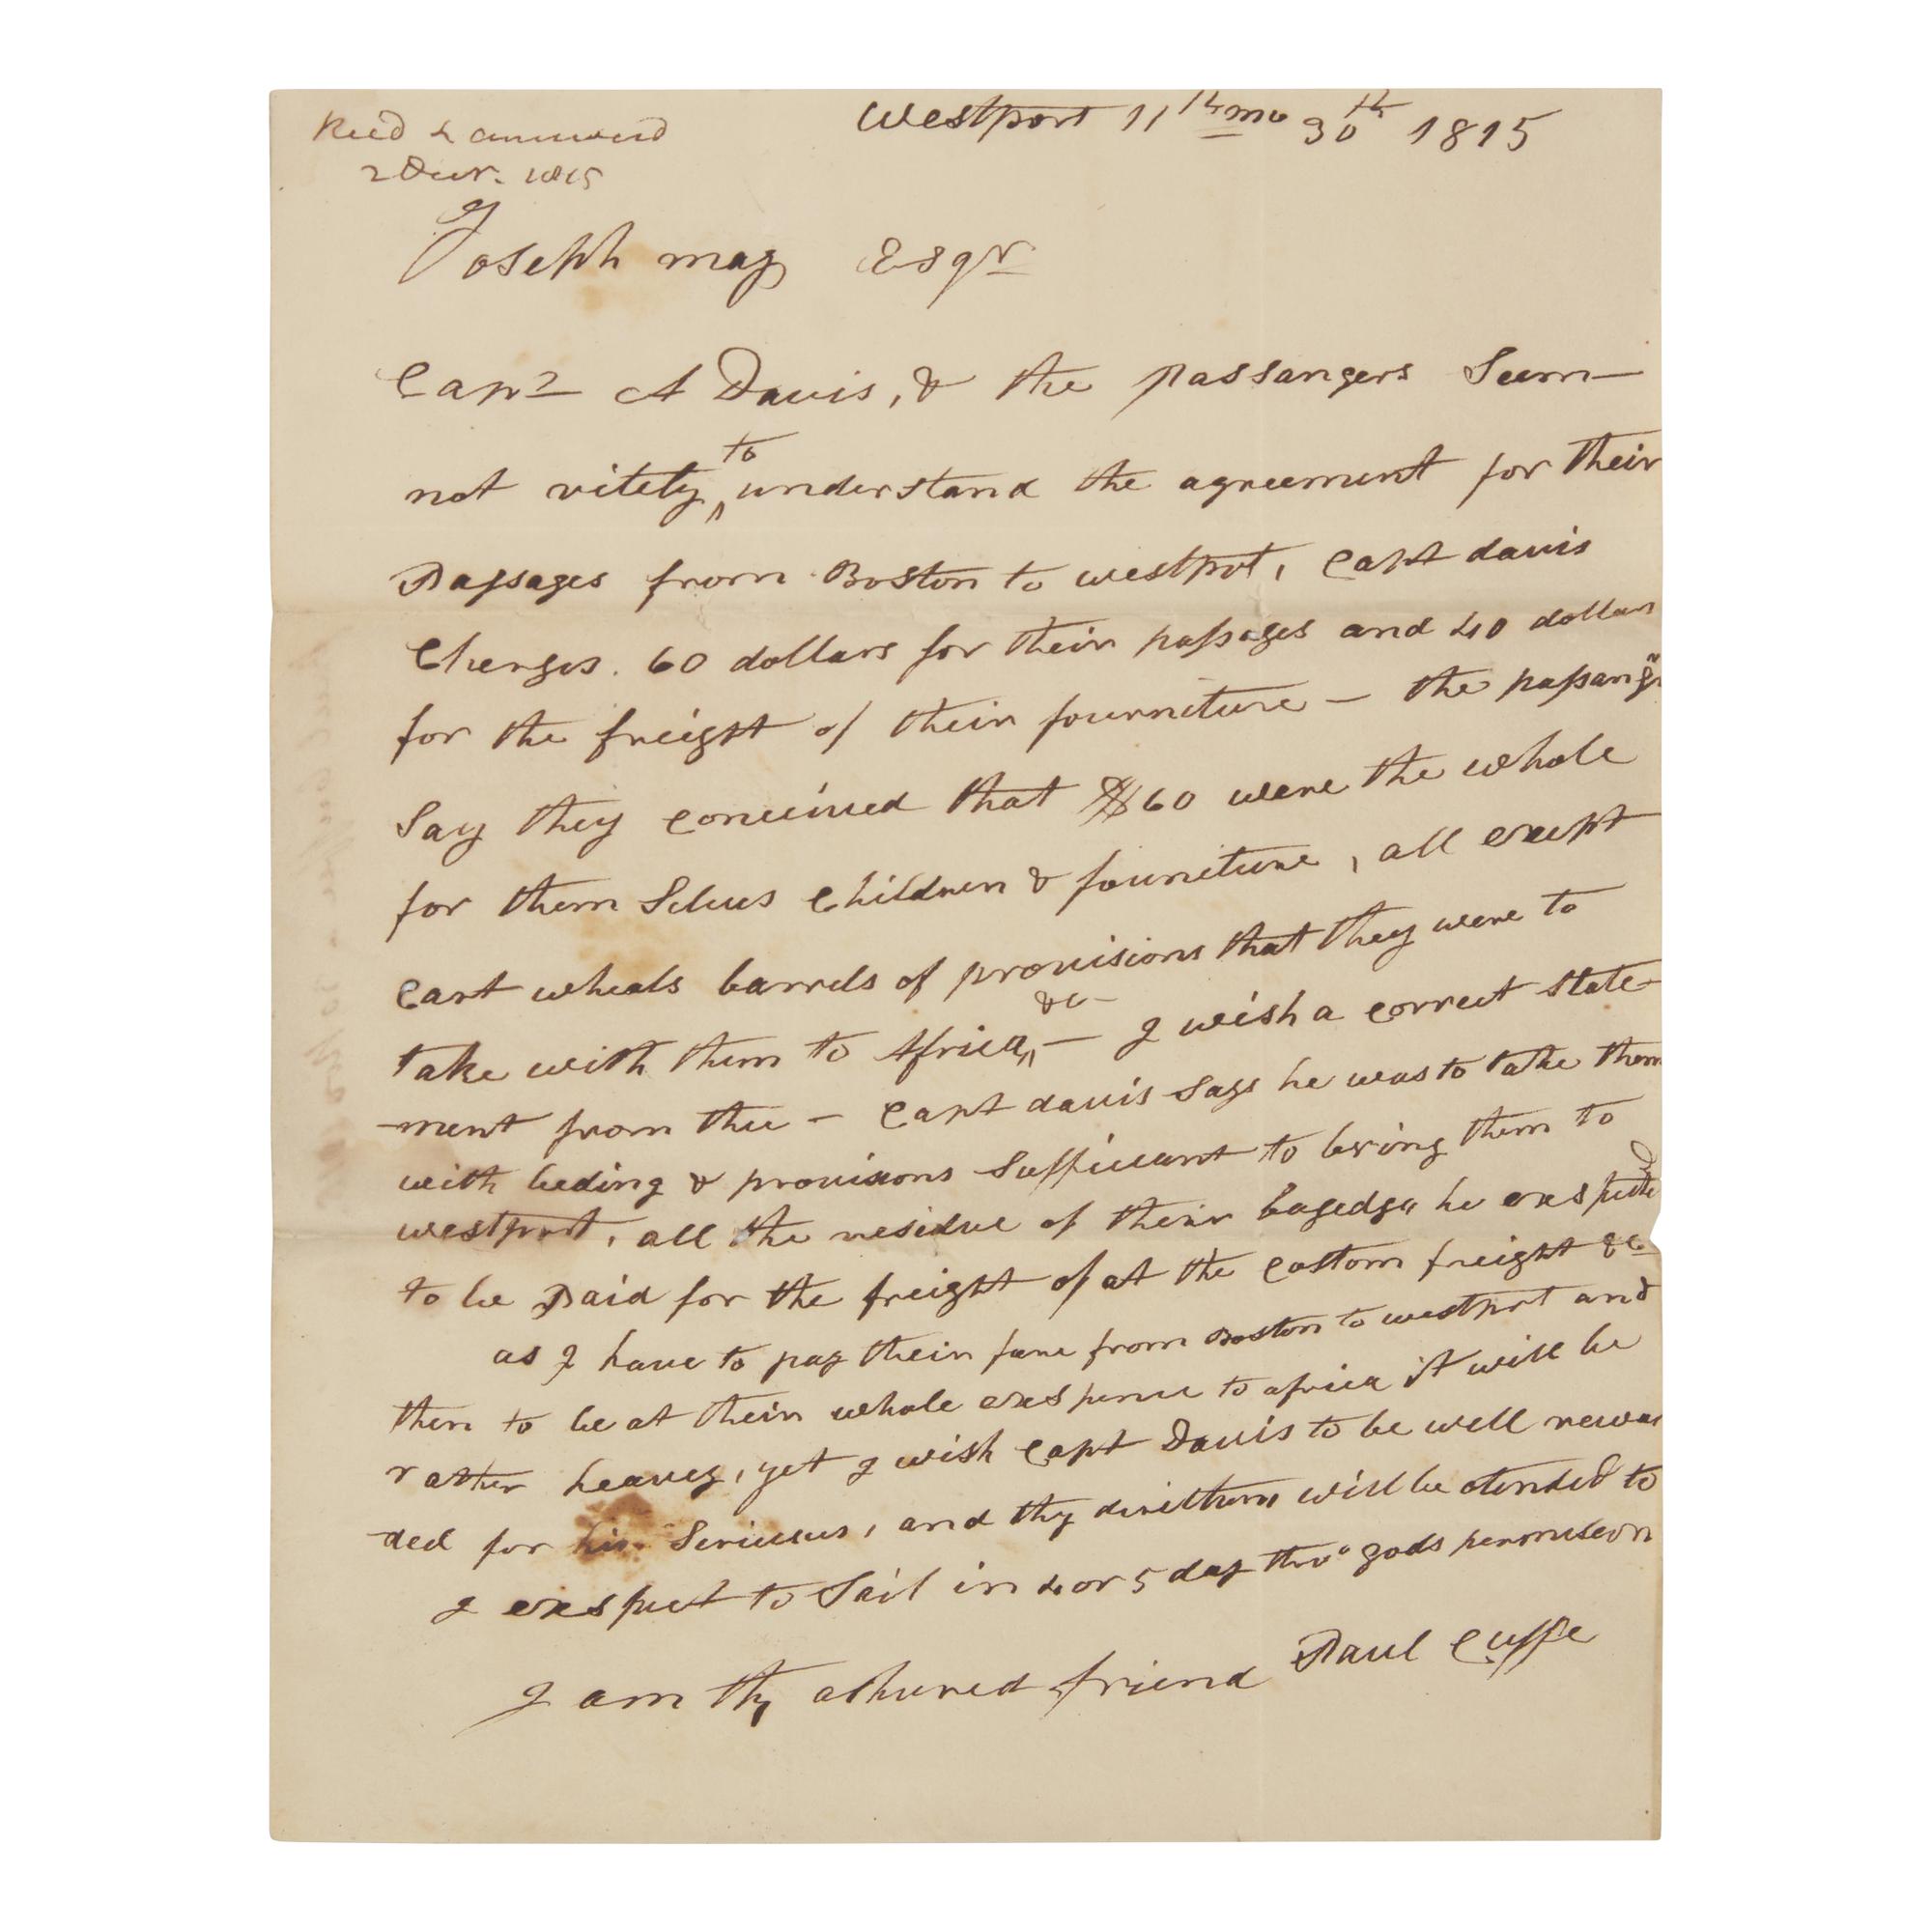 Recd & answered
2 Decr. 1815
Westport 11th mo 30th 1815
Joseph may Esqr
Capt A Davis, & the passangers Seem
not to understand the agreement for their
Passages from Boston to westport, Capt davis
Cherges. 60 dollars for their passages and 40 dollars
for the freight of their fourniture – the passangrs
Say they conceived that $60 were the whole
for them Selves Children & founiture, all except
Cart wheals barrels of provisions that they were to
take with them to Africa, &c – I wish a correct state-
ment from thee – Capt davis Says he was to take them
with beding & provisions Suffiecant to bring them to
westport, all the residue of their bagedge he exspected
to be Paid for the freight of at the Costom freight &c
as I have to pay their fare from Boston to westport and
then to be at their whole exspence to africa it will be
rather heavey, yet I wish Capt Davis to be well rewar
-ded for his Serieves, and thy dirictions will be atended to
I exspect to Sail in 4 or 5 day thro gods permiseon
I am thy ashured friend Paul Cuffe